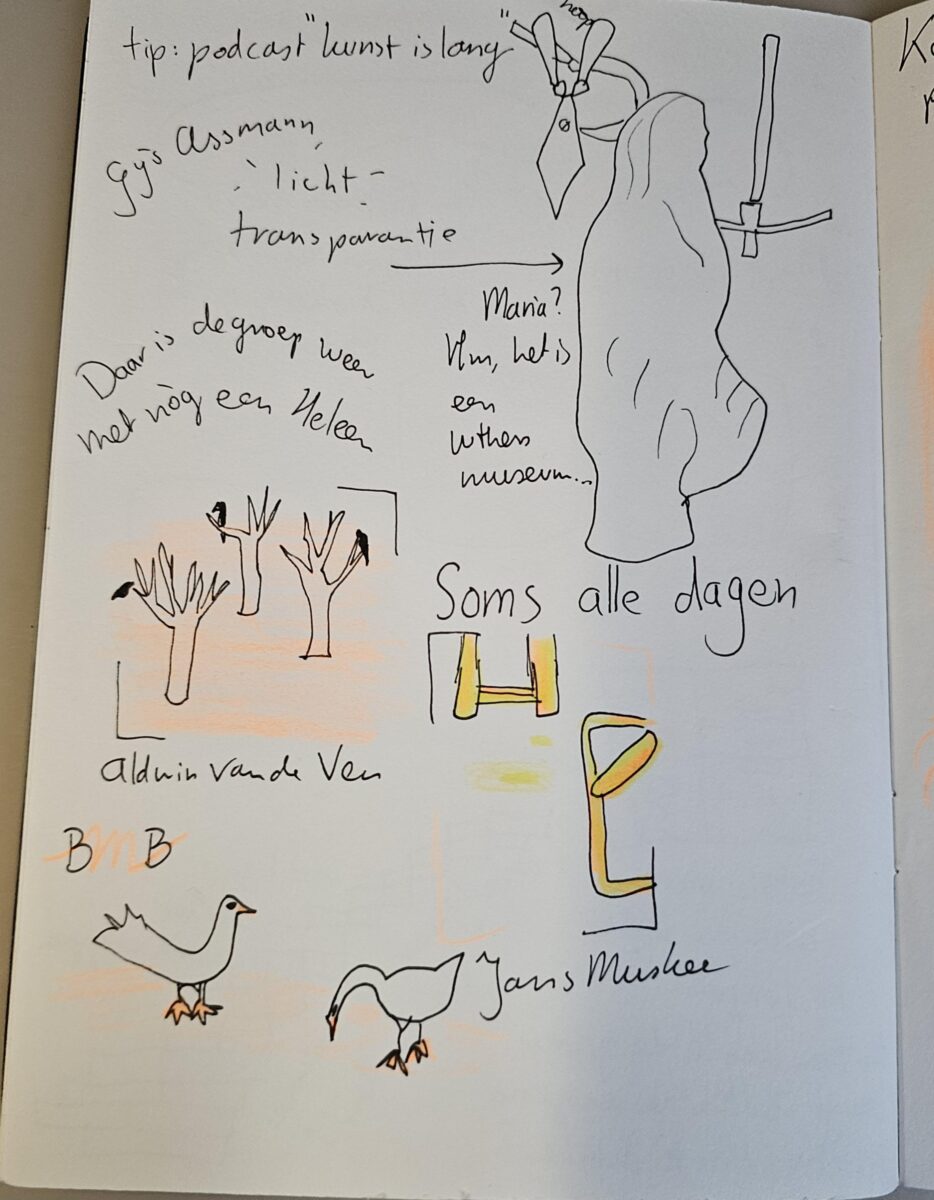 tip: podcast "kunst is lang"
hoop
Gijs Assmann
'licht-
transparantie
Maria?
Hm, het is
een
luthers
museum...
Daar is de groep weer
met nòg een Heleen
Soms alle dagen
alduin van de Ven
BMB
Jans Muskee